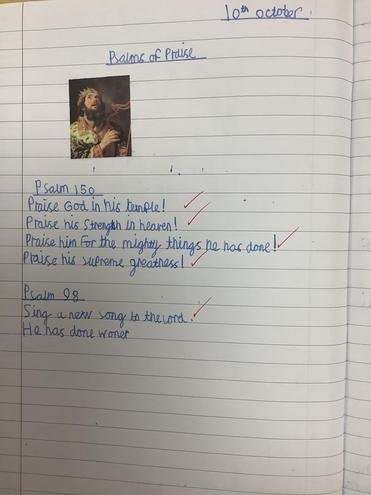 10th october.
Psalms of Praise
Psalm 150
Praise God in his temple!
Praise his Strength in heaven!
Praise him For the mighty things he has done!
Praise his supreme greatness!
Psalm 98
Sing a new song to the Lord.
He has done woner